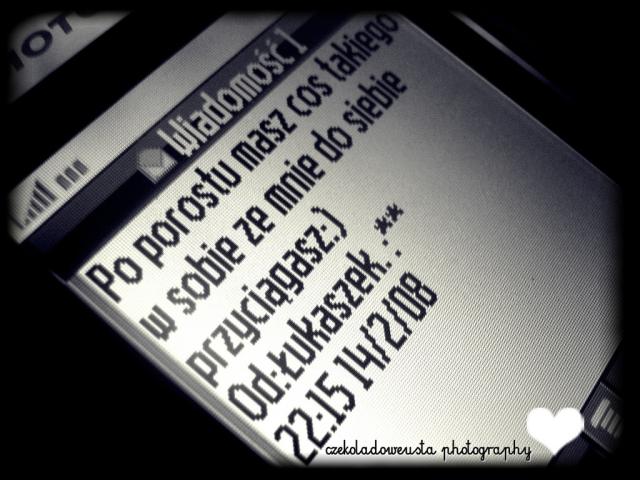 MOTO
Wiadomość 1
Po porostu masz cos takiego
w sobie ze mnie do siebie
przyciągasz:)
Od:Łukaszek. .**
22:15 14/2/08
czekoladoweusta photography